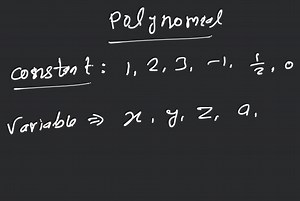 Polynomial
constant : 1, 2, 3, -1, 1/2, 0
Variable ⇒ x, y, z, a,